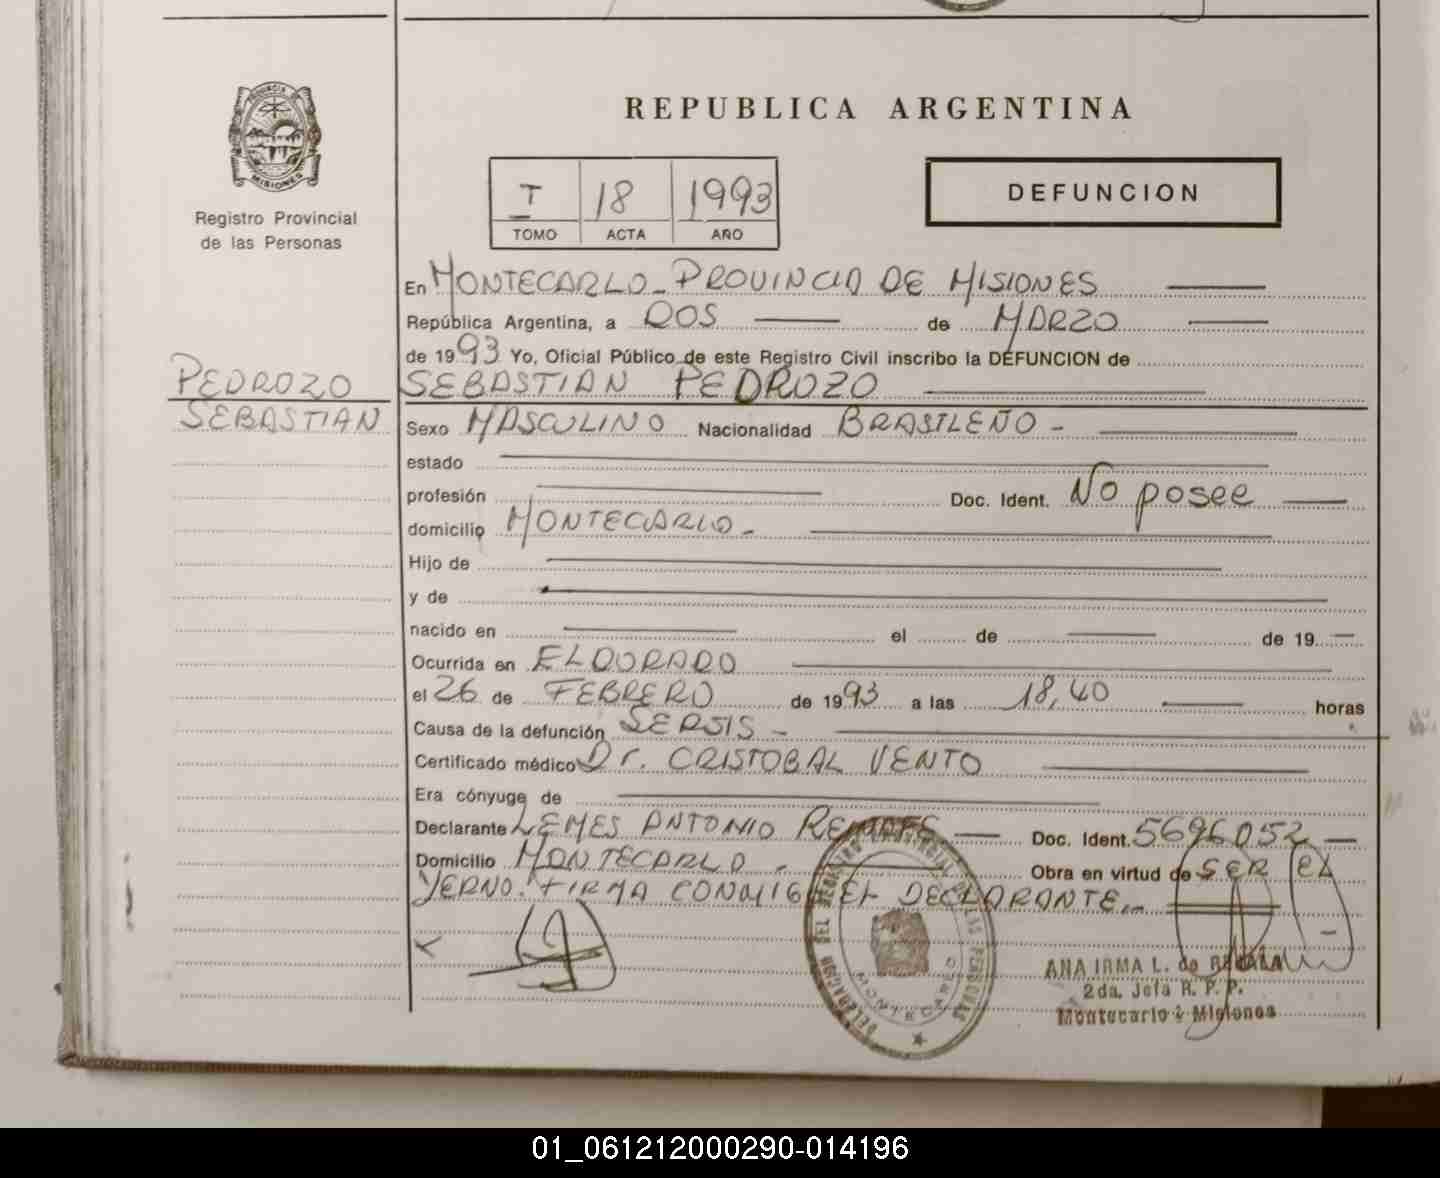 PROVINCIA DE
MISIONES
Registro Provincial
de las Personas
REPUBLICA ARGENTINA
I 18 1993
TOMO ACTA AÑO
DEFUNCION
En MONTECARLO - PROVINCIA DE MISIONES
República Argentina, a DOS de MARZO
de 1993 Yo, Oficial Público de este Registro Civil inscribo la DEFUNCION de
PEDROZO
SEBASTIAN
SEBASTIAN PEDROZO
Sexo MASCULINO Nacionalidad BRASILEÑO -
estado
profesión Doc. Ident. No posee
domicilio MONTECARLO -
Hijo de
y de
nacido en el de de 19
Ocurrida en ELDORADO
el 26 de FEBRERO de 1993 a las 18,40 horas
Causa de la defunción SEPSIS -
Certificado médico Dr. CRISTOBAL VENTO
Era cónyuge de
Declarante LEMES ANTONIO Doc. Ident. 5696052
Domicilio MONTECARLO - Obra en virtud de SER EL
YERNO. FIRMA CONMIGO EL DECLARANTE.-
DELEGACION DEL REGISTRO PROVINCIAL DE LAS PERSONAS
MONTECARLO
ANA IRMA L. de
2da. Jefa R. P. P.
Montecarlo - Misiones
01_061212000290-014196